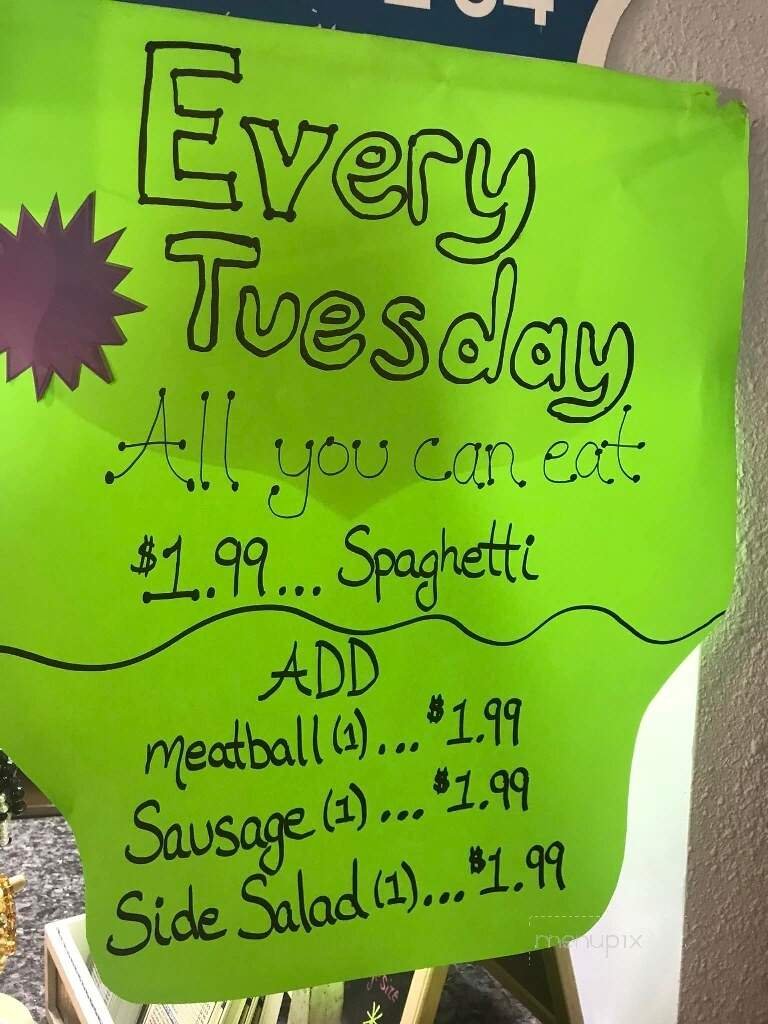 Every
Tuesday
All you can eat
$1.99... Spaghetti
ADD
meatball (1)... $1.99
Sausage (1)... $1.99
Side Salad (1)... $1.99
menupix